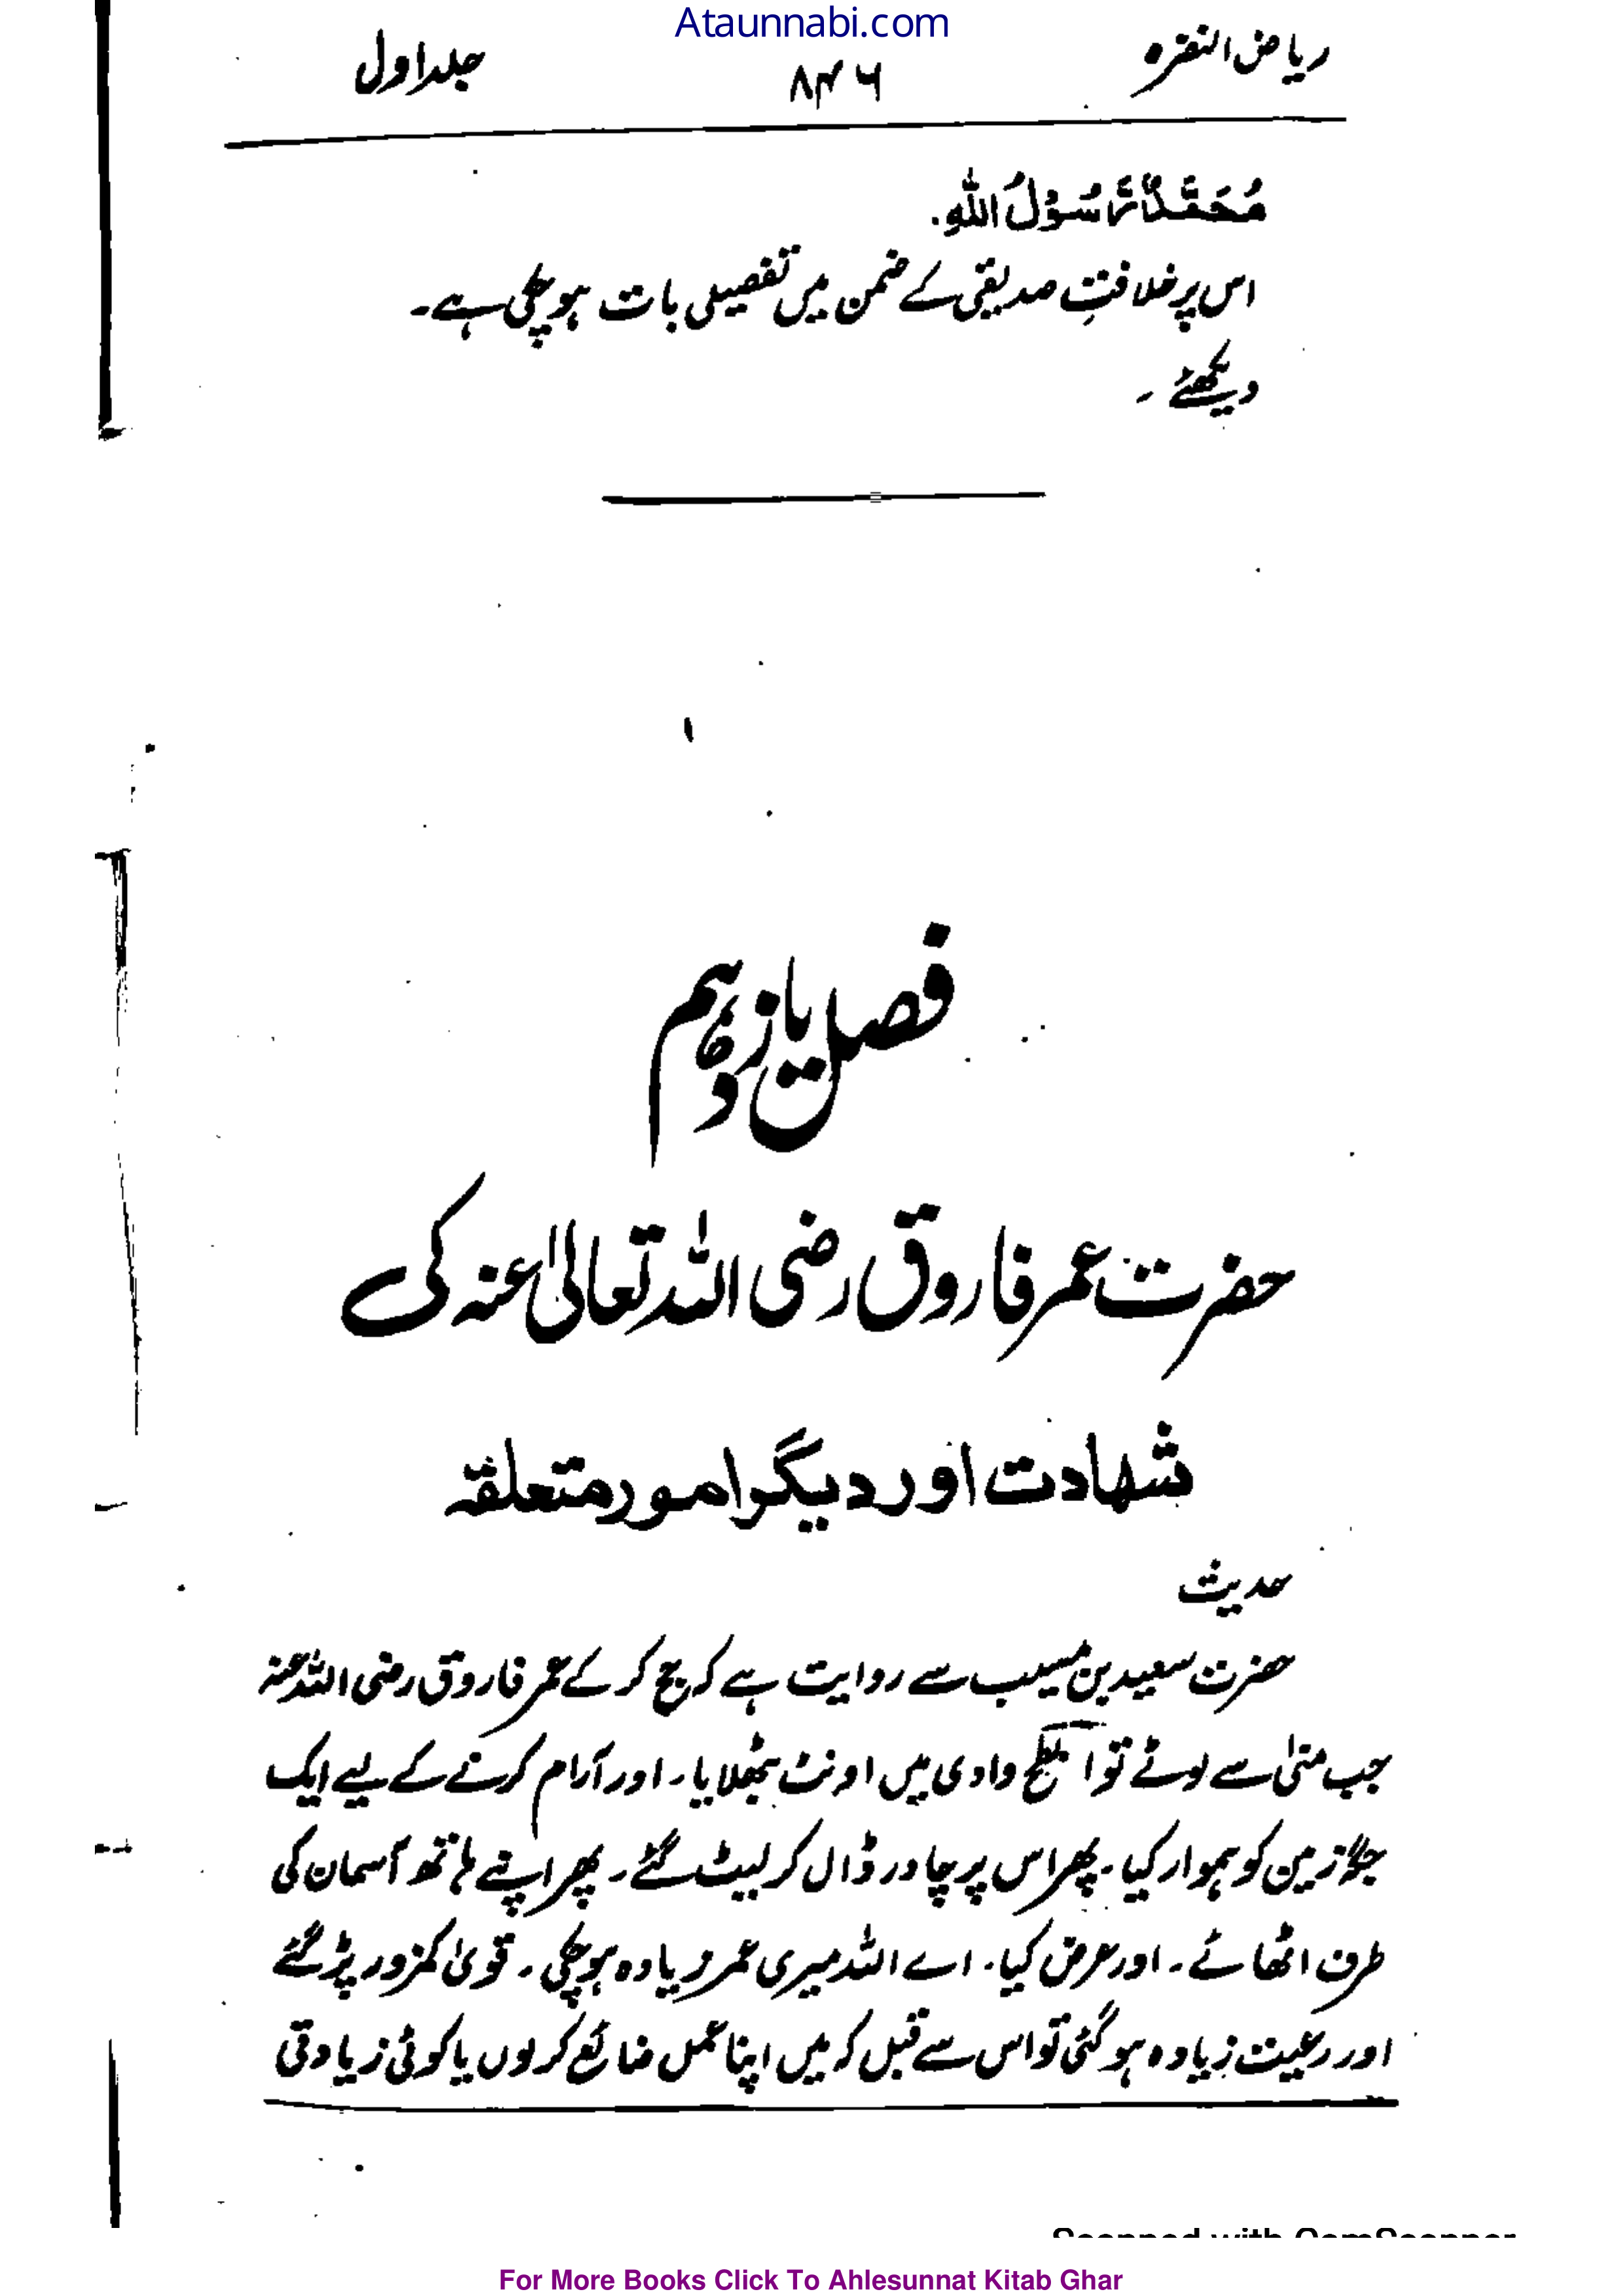 Ataunnabi.com
ریاض النضرہ ۸۴۶ جلد اول
مُحَمَّدٌ رَّسُوْلُ اللّٰہِ.
اس پر خلافتِ صدیقی کے ضمن میں تفصیلی بات ہو چکی ہے۔
دیکھئے۔
فصل یازدہم
حضرت عمر فاروق رضی اللہ تعالیٰ عنہ کی
شہادت اور دیگر امور متعلقہ
حدیث
حضرت سعید بن مسیب سے روایت ہے کہ حج کر کے عمر فاروق رضی اللہ عنہ
جب منیٰ سے لوٹے تو ابطح وادی میں اونٹ بٹھلایا۔ اور آرام کرنے کے لیے ایک
جگہ زمین کو ہموار کیا۔ پھر اس پر چادر ڈال کر لیٹ گئے۔ پھر اپنے ہاتھ آسمان کی
طرف اٹھائے۔ اور عرض کیا۔ اے اللہ میری عمر زیادہ ہو چکی۔ قویٰ کمزور پڑ گئے
اور رعیت زیادہ ہو گئی تو اس سے قبل کہ میں اپنا عمل ضائع کر لوں یا کوئی زیادتی
Scanned with CamScanner
For More Books Click To Ahlesunnat Kitab Ghar